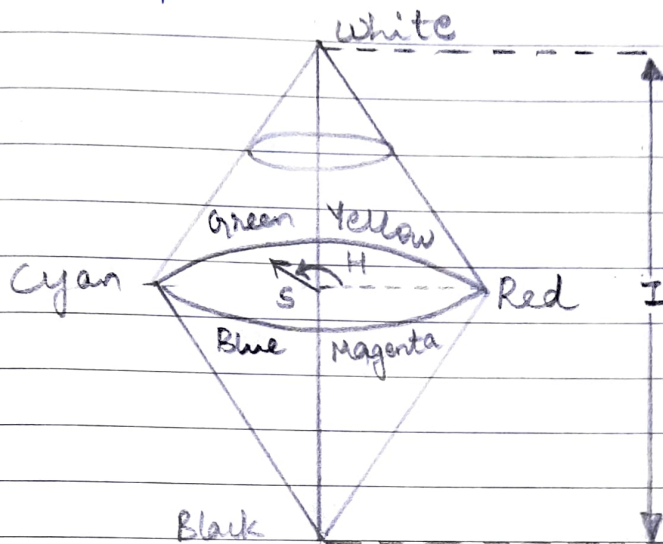 White
Green Yellow
H
Cyan S Red I
Blue Magenta
Black